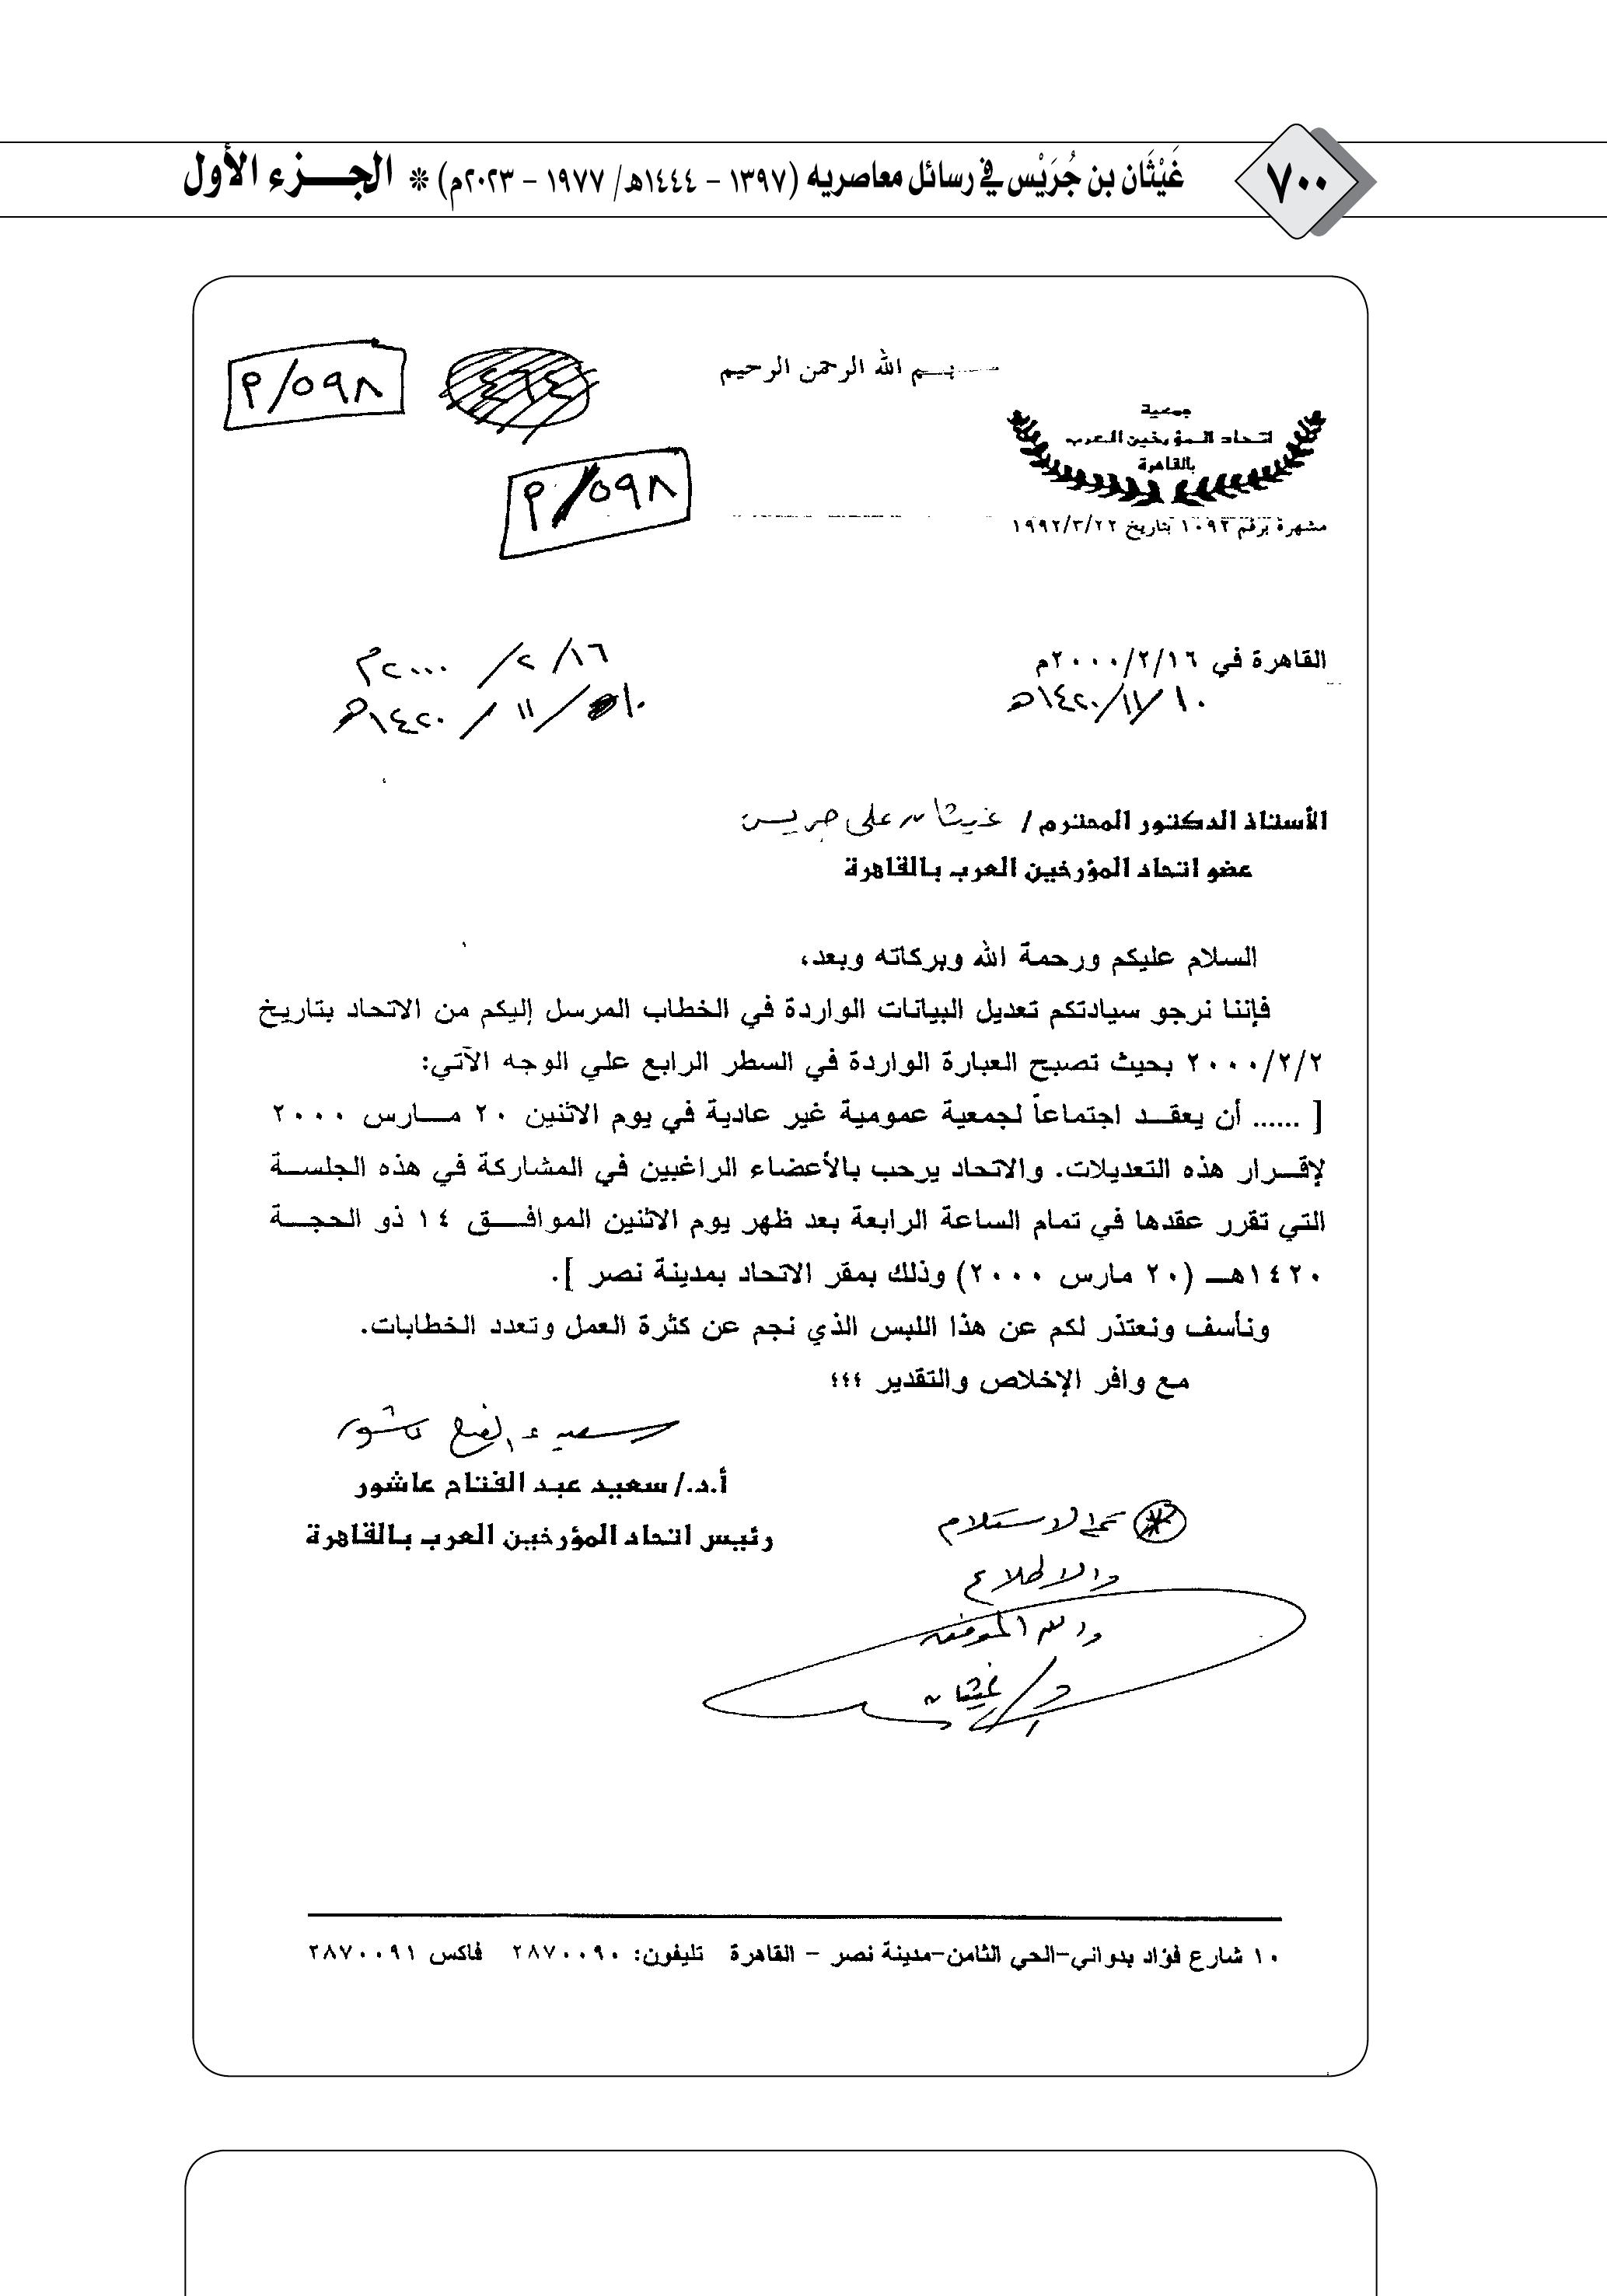 غَيْثَان بن جُرَيْس في رسائل معاصريه (١٣٩٧ - ١٤٤٤هـ/ ١٩٧٧ - ٢٠٢٣م) * الجـــزء الأول
٧٠٠
بسم الله الرحمن الرحيم
٥٩٨/م
٥٩٨/م
جمعية
اتحاد المؤرخين العرب
بالقاهرة
مشهرة برقم ١٠٩٣ بتاريخ ١٩٩٢/٣/٢٢
القاهرة في ٢٠٠٠/٢/١٦م
١٤٢٠/١١/١٠هـ
٢٠٠٠/٢/١٦م
١٤٢٠/١١/١٠هـ
الأستاذ الدكتور المحترم / غيثان على جريس
عضو اتحاد المؤرخين العرب بالقاهرة
السلام عليكم ورحمة الله وبركاته وبعد،
فإننا نرجو سيادتكم تعديل البيانات الواردة في الخطاب المرسل إليكم من الاتحاد بتاريخ
٢٠٠٠/٢/٢ بحيث تصبح العبارة الواردة في السطر الرابع علي الوجه الآتي:
[ ...... أن يعقـد اجتماعاً لجمعية عمومية غير عادية في يوم الاثنين ٢٠ مـارس ٢٠٠٠
لإقـرار هذه التعديلات. والاتحاد يرحب بالأعضاء الراغبين في المشاركة في هذه الجلسـة
التي تقرر عقدها في تمام الساعة الرابعة بعد ظهر يوم الاثنين الموافـق ١٤ ذو الحجـة
١٤٢٠هـ (٢٠ مارس ٢٠٠٠) وذلك بمقر الاتحاد بمدينة نصر ].
ونأسف ونعتذر لكم عن هذا اللبس الذي نجم عن كثرة العمل وتعدد الخطابات.
مع وافر الإخلاص والتقدير ،،،
سعيد عبد الفتاح عاشور
أ.د./ سعيد عبد الفتاح عاشور
رئيس اتحاد المؤرخين العرب بالقاهرة
تم الاستلام
والاطلاع
والله الموفق
د/ غيثان
١٠ شارع فؤاد بدواني-الحي الثامن-مدينة نصر - القاهرة تليفون: ٢٨٧٠٠٩٠ فاكس ٢٨٧٠٠٩١